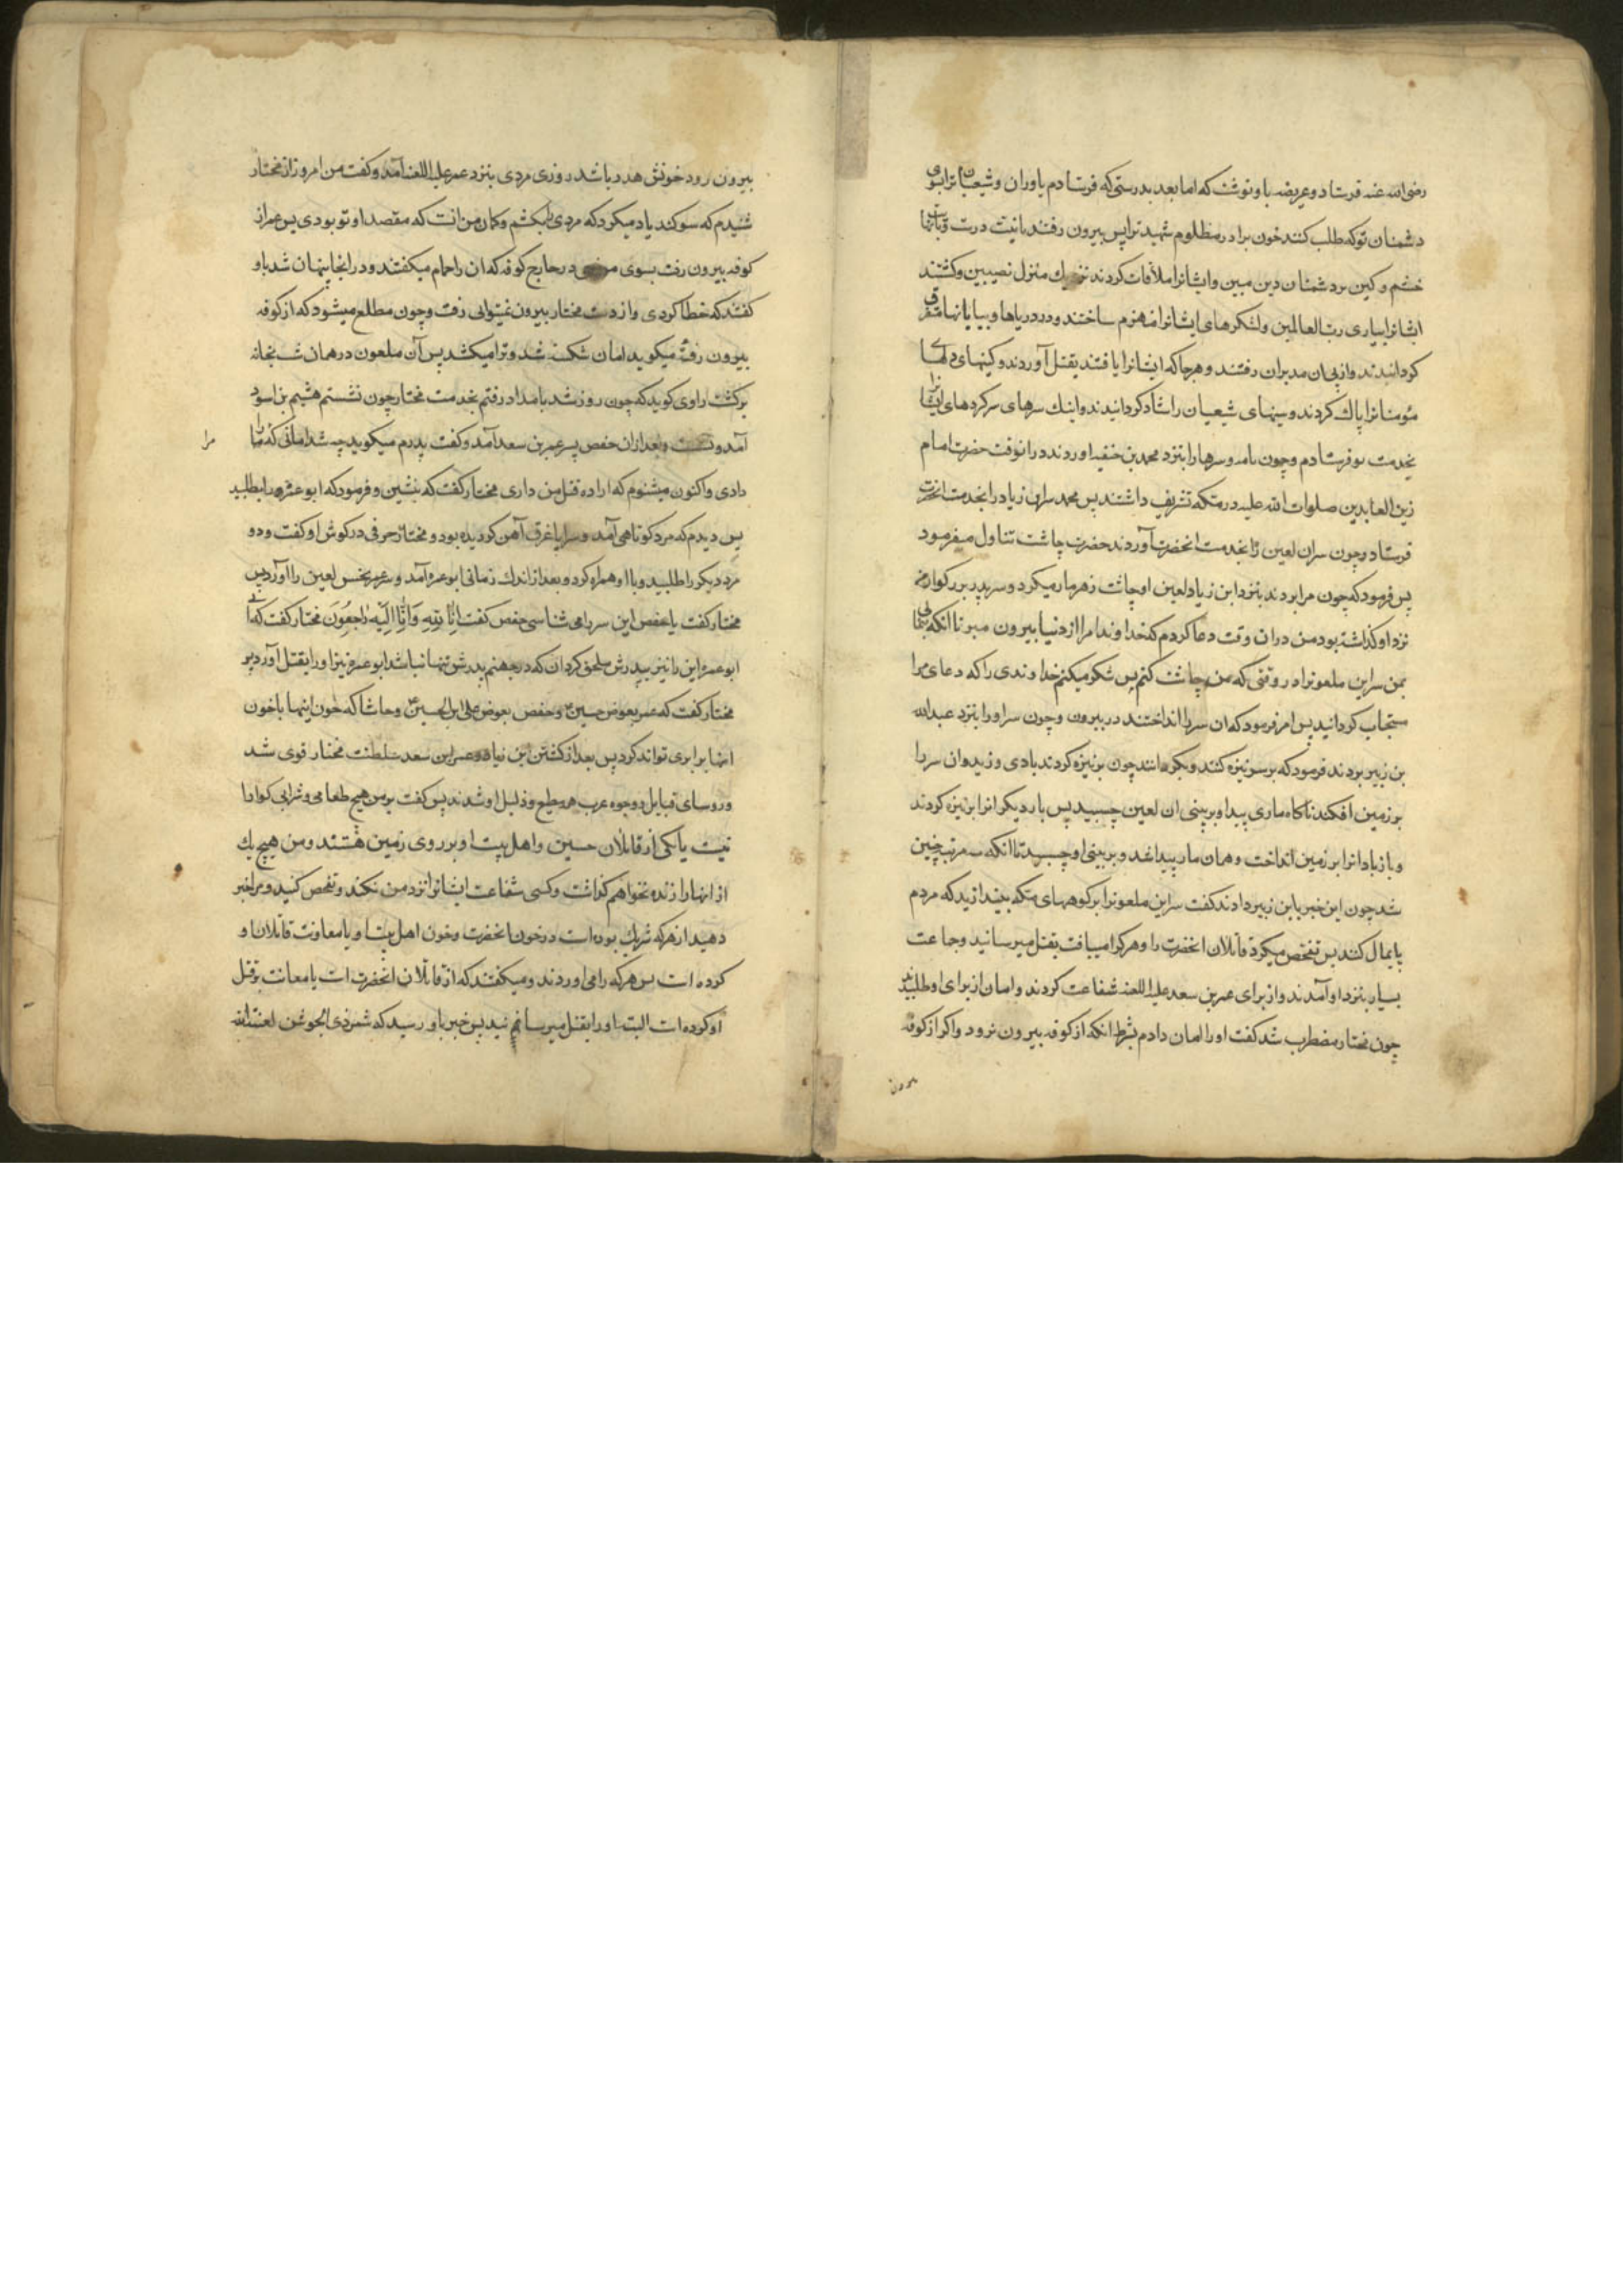 رضی الله عنه فرستاد و عریضه باو نوشت که اما بعد بدرستی که فرستادم یاوران و شیعیان ترا بسوی
دشمنان تو که طلب کنند خون برادر مظلوم شهید ترا پس بیرون رفتند بانیت درست و با نهایت
خشم و کین بر دشمنان دین مبین و ایشانرا ملاقات کردند نزدیك منزل نصیبین و کشتند
ایشانرا بیاری رب العالمین و لشکرهای ایشانرا منهزم ساختند و در دریاها و بیابانها متفرق
کردانیدند و از پی ان مدبران رفتند و هرجا که ایشانرا یافتند بقتل آوردند و کینهای دلهای
مؤمنانرا پاك کردند و سینهای شیعیان را شاد کردانیدند و اینك سرهای سرکردهای ایشانرا
بخدمت تو فرستادم و چون نامه و سرها را بنزد محمد بن حنفیه اوردند در انوقت حضرت امام
زین العابدین صلوات الله علیه در مکه تشریف داشتند پس محمد سر ابن زیاد را بخدمت انحضرت
فرستاد و چون سر ان لعین را بخدمت انحضرت آوردند حضرت چاشت تناول میفرمود
پس فرمود که چون مرا بردند بنزد ابن زیاد لعین او چاشت زهرمار میکرد و سر پدر بزرکوارم
نزد او کذاشته بود من در ان وقت دعا کردم که خداوندا مرا از دنیا بیرون مبر تا انکه بنمائی
بمن سر این ملعونرا در وقتی که من چاشت کنم پس شکر میکنم خداوندی را که دعای مرا
مستجاب کردانید پس امر فرمود که ان سر را انداختند در بیرون و چون سر او را بنزد عبدالله
بن زبیر بردند فرمود که بر سر نیزه کنند و بگردانند چون بر نیزه کردند بادی وزید و ان سر را
بر زمین افکند ناکاه ماری پیدا و بر بینی ان لعین چسبید پس بار دیگر انرا بر نیزه کردند
و باز باد انرا بر زمین انداخت و همان مار پیدا شد و بر بینی او چسبید تا انکه سه مرتبه چنین
شد چون این خبر بابن زبیر دادند کفت سر این ملعونرا بر کوههای مکه بیندازید که مردم
پایمال کنند پس تفحص میکرد قاتلان انحضرت را و هرکرا مییافت بقتل میرسانید و جماعت
بسیار بنزد او آمدند و از برای عمر بن سعد علیه اللعنه شفاعت کردند و امان از برای او طلبیدند
چون مختار مضطرب شد کفت او را امان دادم بشرط انکه از کوفه بیرون نرود و اکر از کوفه
بیرون
بیرون رود خونش هدر باشد روزی مردی بنزد عمر علیه اللعنه آمد و کفت من امروز از مختار
شنیدم که سوکند یاد میکرد که مردی را بکشم و کمان من انست که مقصد او تو بودی پس عمر از
کوفه بیرون رفت بسوی موضعی در خارج کوفه که ان را حمام میکفتند و در انجا پنهان شد باو
کفتند که خطا کردی و از دست مختار بیرون نمیتوانی رفت و چون مطلع میشود که از کوفه
بیرون رفتهٔ میکوید امان شکسته شد و ترا میکشد پس آن ملعون در همان شب بخانه
برکشت راوی کوید که چون روز شد بامداد رفتم بخدمت مختار چون نشستم هیثم بن اسود
آمد و نشست و بعد از ان حفص پسر عمر بن سعد آمد و کفت پدرم میکوید چه شد امانی که ما را
مرا
دادی و اکنون میشنوم که اراده قتل من داری مختار کفت که بنشین و فرمود که ابو عمره را بطلبید
پس دیدم که مرد کوتاهی آمد و سراپا غرق آهن کردیده بود و مختار حرفی در کوش او کفت و دو
مرد دیکر را طلبید و با او همراه کرد و بعد از اندك زمانی ابو عمره آمد و سر عمر نحس لعین را آورد پس
مختار کفت با حفص این سر را می شناسی حفص کفت اِنّا لِلّهِ وَاِنّا اِلَیْهِ راجِعُونَ مختار کفت که ای
ابو عمره این را نیز بپدرش ملحق کردان که در جهنم پدرش تنها نباشد ابو عمره نیز او را بقتل آورد پس
مختار کفت که عمر بعوض حسین و حفص بعوض علی ابن الحسین و حاشا که خون اینها با خون
انها برابری تواند کرد پس بعد از کشتن ابن زیاد و عمر ابن سعد سلطنت مختار قوی شد
و روسای قبایل و وجوه عرب همه مطیع و ذلیل او شدند پس کفت بر من هیچ طعامی و شرابی کوارا
نیست یا یکی از قاتلان حسین و اهل بیت او بر روی زمین هستند و من هیچ یك
از انها را زنده نخواهم کذاشت و کسی شفاعت ایشانرا نزد من نکند و تفحص کنید و مرا خبر
دهید از هرکه شریك بوده است در خون انحضرت و خون اهل بیت او یا معاونت قاتلان او
کرده است پس هرکه را می اوردند و میکفتند که از قاتلان انحضرت است یا معانت بر قتل
او کرده است البته او را بقتل میرسانیدند پس خبر باو رسید که شمر ذی الجوشن لعنة الله